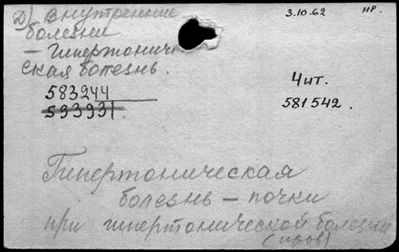 Д) Внутренние
болезни
3.10.62
нр.
— Гипертониче
ская болезнь.
583244
593931
Чит.
581542.
Гипертоническая
болезнь — почки
при гипертонической болезни